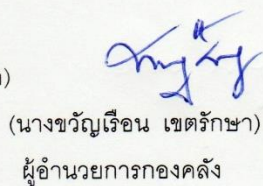 )
(นางขวัญเรือน เขตรักษา)
ผู้อำนวยการกองคลัง